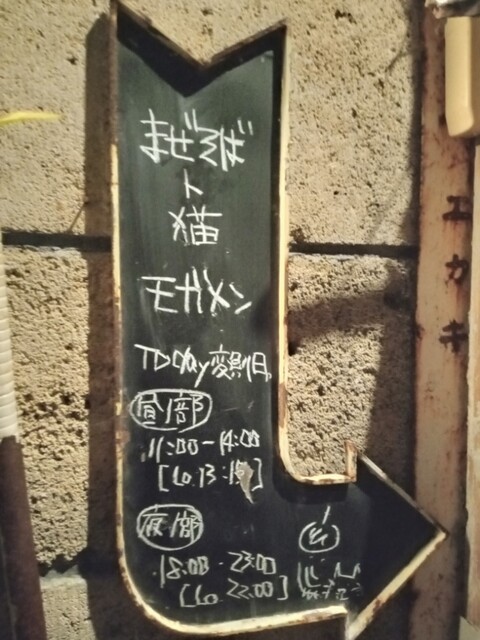 まぜそば
ト
猫
モガメン
TODAY変則日
昼ノ部
11:00-14:00
夜ノ部
18:00-23:00
[Lo.22:00]
エカキ